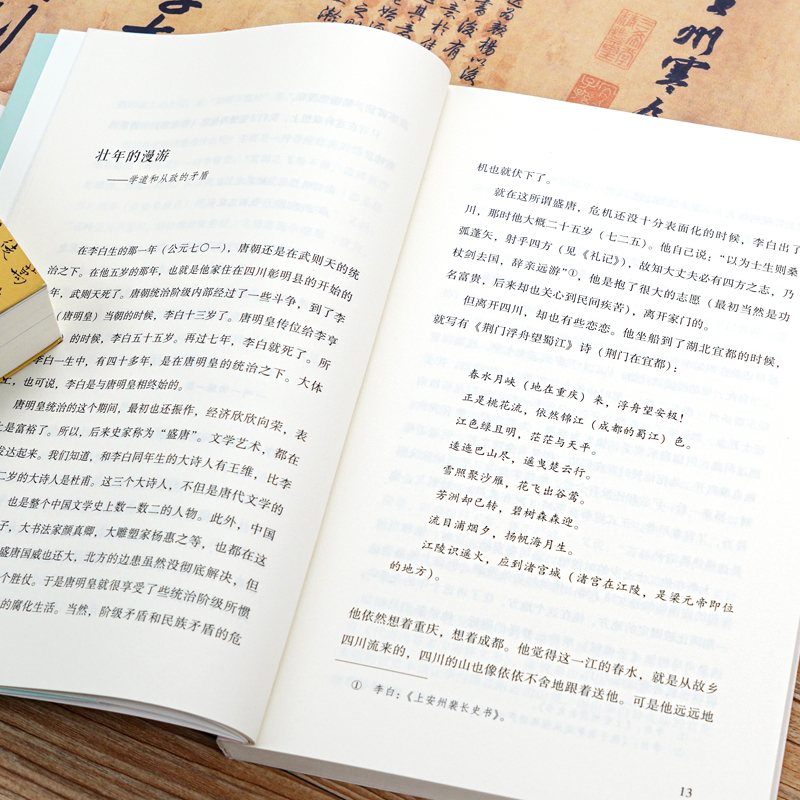 壮年的漫游
——学道和从政的矛盾
在李白生的那一年（公元七〇一），唐朝还是在武则天的统
治之下。在他五岁的那年，也就是他家住在四川彰明县的开始的
年，武则天死了。唐朝统治阶级内部经过了一些斗争，到了李
（唐明皇）当朝的时候，李白十三岁了。唐明皇传位给李亨
）的时候，李白五十五岁。再过七年，李白就死了。所
李白一生中，有四十多年，是在唐明皇的统治之下。大体
上，也可说，李白是与唐明皇相终始的。
唐明皇统治的这个期间，最初也还振作，经济欣欣向荣，表
上是富裕了。所以，后来史家称为“盛唐”。文学艺术，都在
发达起来。我们知道，和李白同年生的大诗人有王维，比李
二岁的大诗人是杜甫。这三个大诗人，不但是唐代文学的
，也是整个中国文学史上数一数二的人物。此外，中国
子，大书法家颜真卿，大雕塑家杨惠之等，也都在这
盛唐国威也还大，北方的边患虽然没彻底解决，但
个胜仗。于是唐明皇就很享受了些统治阶级所惯
的腐化生活。当然，阶级矛盾和民族矛盾的危
机也就伏下了。
就在这所谓盛唐，危机还没十分表面化的时候，李白出了
川，那时他大概二十五岁（七二五）。他自己说：“以为士生则桑
弧蓬矢，射乎四方（见《礼记》），故知大丈夫必有四方之志，乃
杖剑去国，辞亲远游”①，他是抱了很大的志愿（最初当然是功
名富贵，后来却也关心到民间疾苦），离开家门的。
但离开四川，却也有些恋恋。他坐船到了湖北宜都的时候，
就写有《荆门浮舟望蜀江》诗（荆门在宜都）：
春水月峡（地在重庆）来，浮舟望安极！
正是桃花流，依然锦江（成都的蜀江）色。
江色绿且明，茫茫与天平。
逶迤巴山尽，遥曳楚云行。
雪照聚沙雁，花飞出谷莺。
芳洲却已转，碧树森森迎。
流目浦烟夕，扬帆海月生。
江陵识遥火，应到渚宫城（渚宫在江陵，是梁元帝即位
的地方）。
他依然想着重庆，想着成都。他觉得这一江的春水，就是从故乡
四川流来的，四川的山也像依依不舍地跟着送他。可是他远远地
① 李白：《上安州裴长史书》。
13